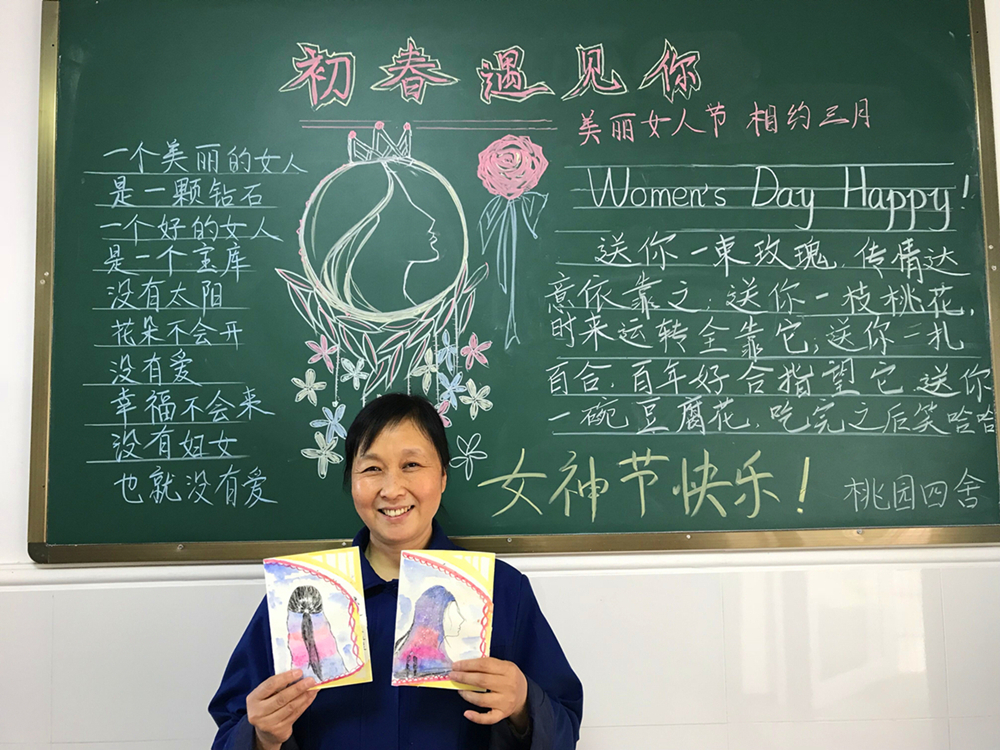 初春遇见你
美丽女人节 相约三月
一个美丽的女人
是一颗钻石
一个好的女人
是一个宝库
没有太阳
花朵不会开
没有爱
幸福不会来
没有妇女
也就没有爱
Women's Day Happy!
送你一束玫瑰，传情达
意依靠之；送你一枝桃花，
时来运转全靠它；送你一扎
百合，百年好合指望它 送你
一碗豆腐花，吃完之后笑哈哈
女神节快乐！
桃园四舍